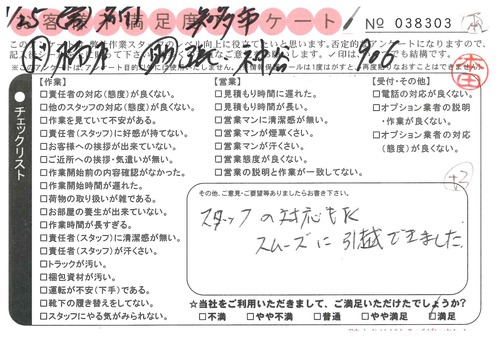 お客様満足度アンケート
No 038303
1/25
【作業】
□責任者の対応(態度)が良くない。
□他のスタッフの対応(態度)が良くない。
□作業を見ていて不安がある。
□責任者(スタッフ)に好感が持てない。
□お客様への挨拶が出来ていない。
□ご近所への挨拶・気遣いが無い。
□作業開始前の内容確認がなかった。
□作業開始時間が遅れた。
□荷物の取り扱いが雑である。
□お部屋の養生が出来ていない。
□作業時間が長すぎる。
□責任者(スタッフ)に清潔感が無い。
□責任者(スタッフ)が汗くさい。
□トラックが汚い。
□梱包資材が汚い。
□運転が不安(下手)である。
□靴下の履き替えをしてない。
□スタッフにやる気がみられない。
【営業】
□見積もり時間に遅れた。
□見積もり時間が長い。
□営業マンに清潔感が無い。
□営業マンが煙草くさい。
□営業マンが汗くさい。
□営業態度が良くない。
□営業の説明と作業が一致してない。
【受付・その他】
□電話の対応が良くない。
□オプション業者の説明
・作業が良くない。
□オプション業者の対応
(態度)が良くない。
●チェックリスト
その他、ご意見・ご要望等ありましたらお書き下さい。
スタッフの対応もよく
スムーズに引越できました。
☆当社をご利用いただきまして、ご満足いただけたでしょうか?
□不満 □やや不満 □普通 □やや満足 □満足